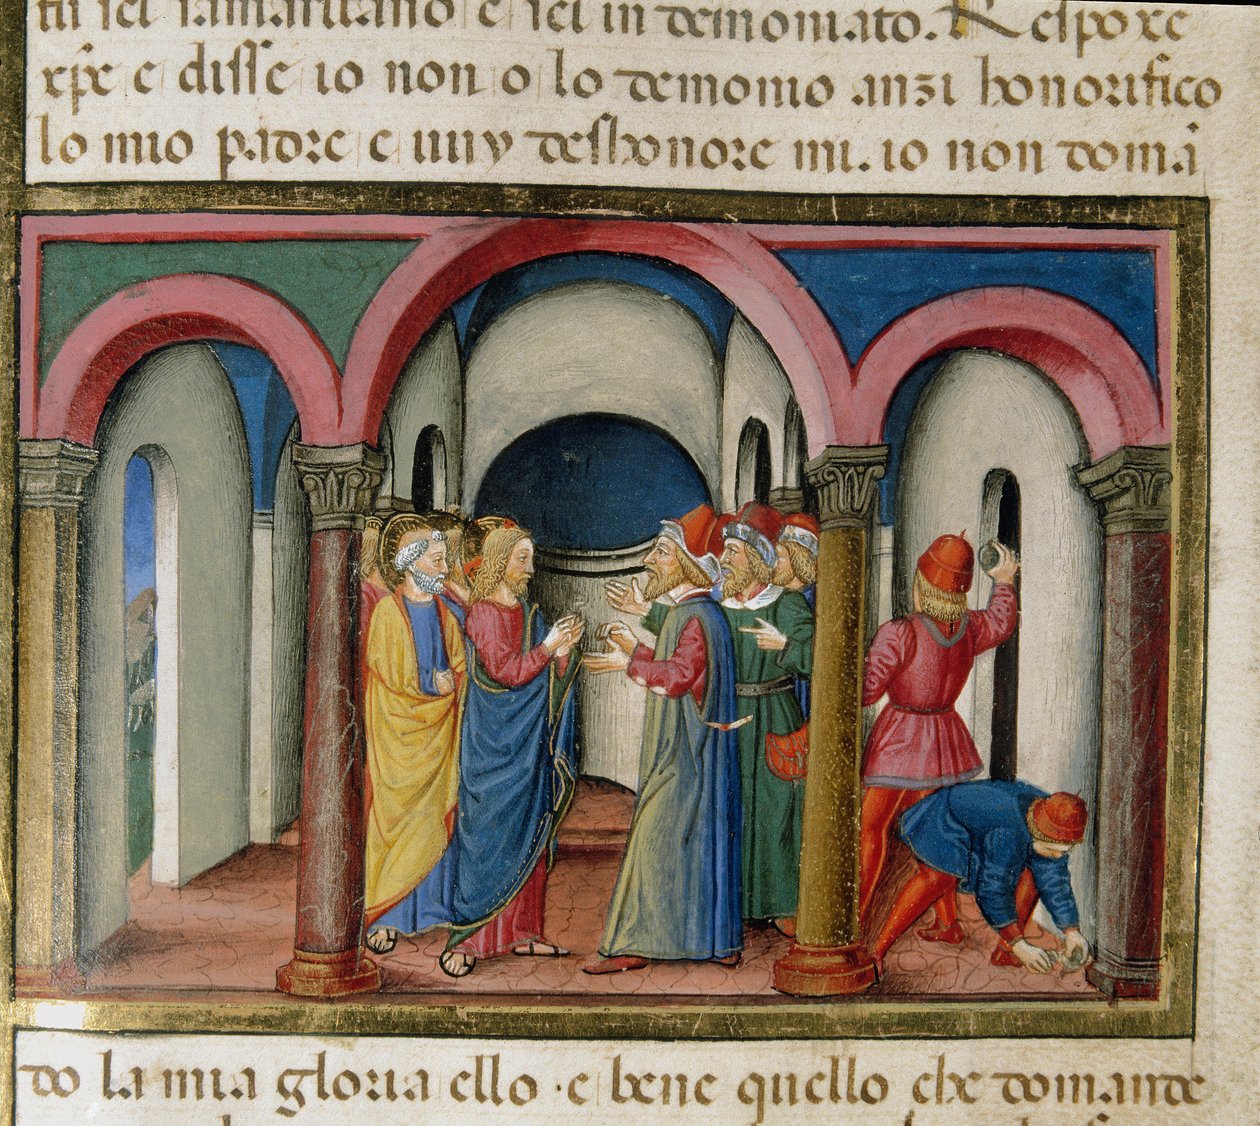 tu sei samaritano e sei in demoniato. Respoxe
xp̄e e disse io non o lo demonio anzi honorifico
lo mio padre e vuy deshonore mi. io non domā
do la mia gloria ello · e bene quello che domande